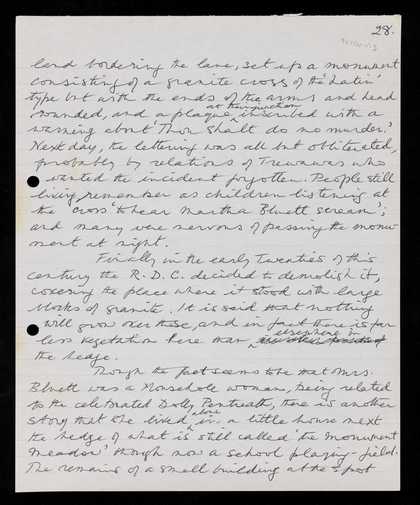 28.
land bordering the lane, set up a monument
consisting of a granite cross of the 'Latin'
type but with the ends of the arms and head
rounded, and a plaque at their junction inscribed with a
warning about 'Thou shalt do no murder.'
Next day, the lettering was all but obliterated,
probably by relations of Trewavas who
wanted the incident forgotten. People still
living remember as children listening at
the 'cross to hear Martha Bluett scream';
and many were nervous of passing the monu-
ment at night.
Finally in the early Twenties of this
century the R.D.C. decided to demolish it,
covering the place where it stood with large
blocks of granite. It is said that nothing
will grow over these, and in fact there is far
less vegetation here than elsewhere in
the hedge.
Though the fact seems to be that Mrs.
Bluett was a Mousehole woman, being related
to the celebrated Dolly Pentreath, there is another
story that she lived alone in a little house next
the hedge of what is still called 'the Monument
Meadow' though now a school playing-field.
The remains of a small building at the spot